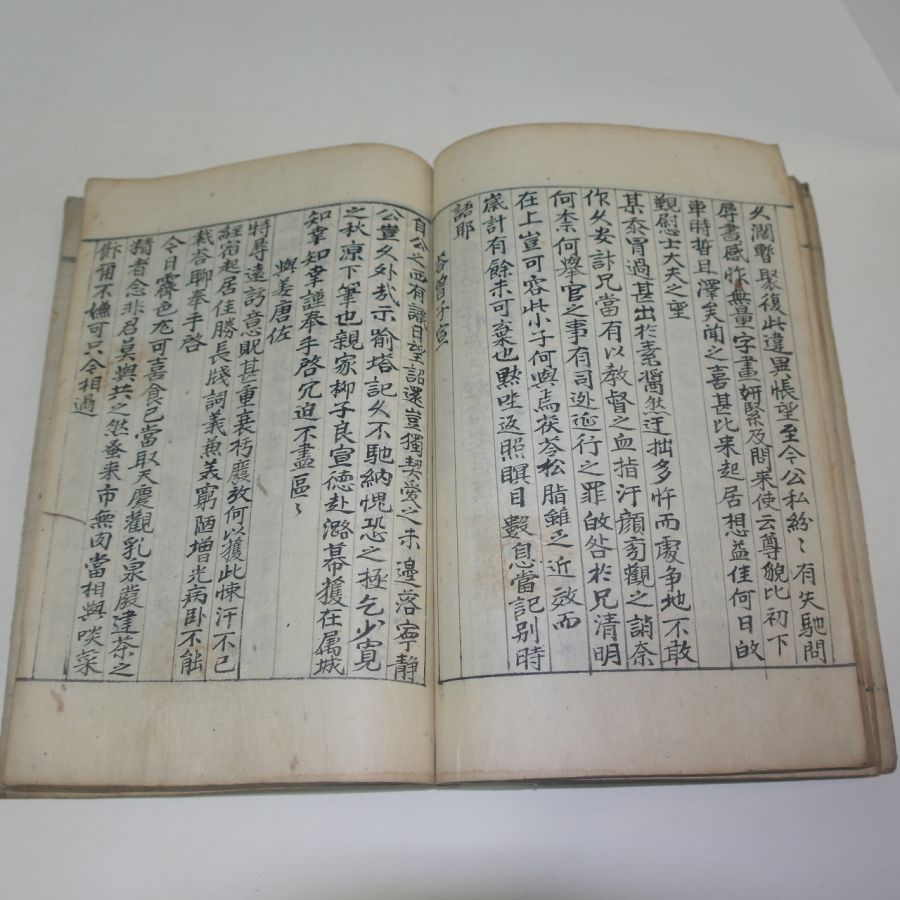 久濶暫聚復此違異悵望至今公私紛〻有失馳問
辱書感怍無量字畫妍緊及問来使云尊貌比初下
車時晳且澤矣聞之喜甚比来起居想益佳何日的
覿慰士大夫之望
某忝冒過甚出於素奬然迂拙多忤而處争地不敢
作久安計兄當有以教督之血指汗顔旁觀之誚奈
何柰何擧官之事有司逃近行之罪的咎於兄清明
在上豈可容此小子何與焉茯苓松脂雖乏近效而
歲計有餘未可棄也黙坐返照瞑目數息當記别時
語耶
答曽子宣
自公之西有識日望詔還豈獨契愛之末邊落寧静
公豈久外哉示喻塔記久不馳納愧恐之極乞少寛
之秋凉下筆也親家柳子良宣徳赴潞幕獲在属城
知幸知幸謹奉手啓冗迫不盡區〻
與姜唐佐
特辱遠訪意貺甚重衰朽廢放何以獲此悚汗不已
経宿起居佳勝長牋詞義兼美窮陋增光病卧不能
裁荅聊奉手啓
今日霽色尤可喜食已當取天慶觀乳泉潑建茶之
精者念非君莫與共之然蚤来市無肉當相與啖菜
飰爾不嫌可只今相過